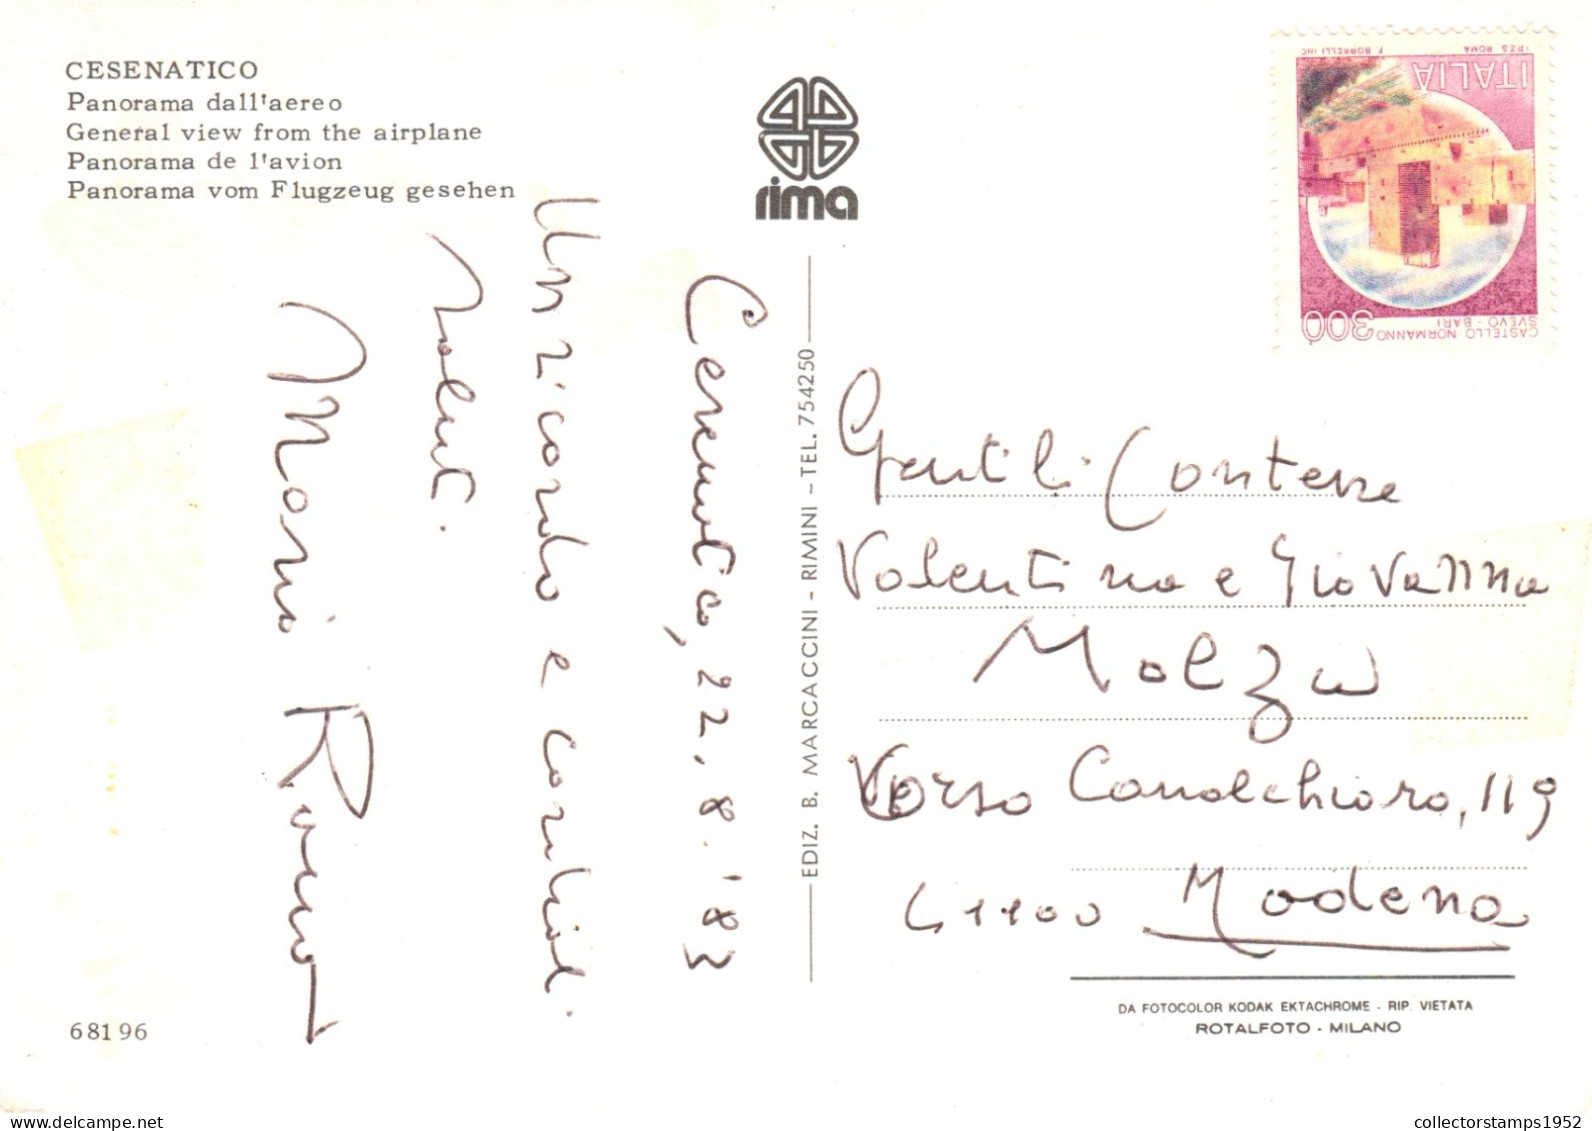 CESENATICO
Panorama dall'aereo
General view from the airplane
Panorama de l'avion
Panorama vom Flugzeug gesehen
rima
I.P.Z.S. ROMA F. BORRELLI INC.
ITALIA
300
CASTELLO NORMANNO
SVEVO - BARI
Cesenatico, 22.8.'83
Un ricordo e cordiali
saluti.
Maria
EDIZ. B. MARCACCINI - RIMINI - TEL. 754250
Gentili Contesse
Valentina e Giovanna
Molza
Corso Canalchiaro, 119
41100 Modena
DA FOTOCOLOR KODAK EKTACHROME - RIP. VIETATA
ROTALFOTO - MILANO
68196
collectorstamps1952